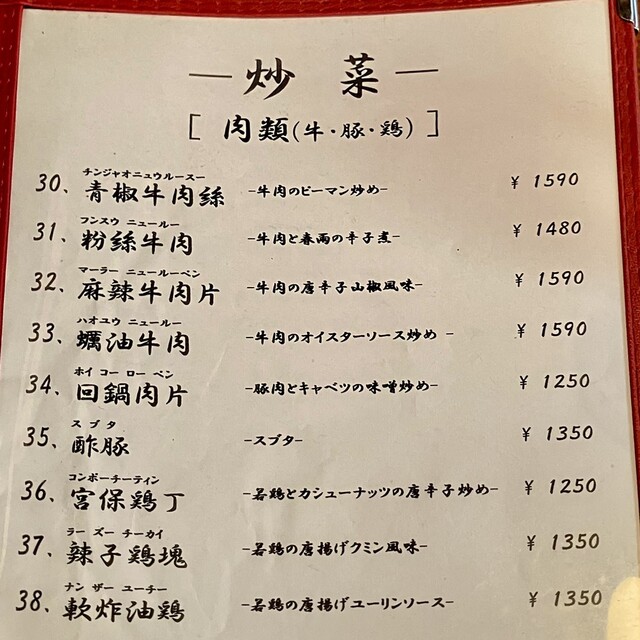 炒菜
[ 肉類(牛・豚・鶏) ]
チンジャオニュウルースー
30、青椒牛肉絲 -牛肉のピーマン炒め- ¥1590
フンスウ ニュールー
31、粉絲牛肉 -牛肉と春雨の辛子煮- ¥1480
マーラー ニュールーペン
32、麻辣牛肉片 -牛肉の唐辛子山椒風味- ¥1590
ハオユウ ニュールー
33、蠣油牛肉 -牛肉のオイスターソース炒め - ¥1590
ホイ コー ロー ペン
34、回鍋肉片 -豚肉とキャベツの味噌炒め- ¥1250
スブタ
35、酢豚 -スブタ- ¥1350
コンボーチーティン
36、宮保鶏丁 -若鶏とカシューナッツの唐辛子炒め- ¥1250
ラー ズー チーカイ
37、辣子鶏塊 -若鶏の唐揚げクミン風味- ¥1350
ナン ザー ユーチー
38、軟炸油鶏 -若鶏の唐揚げユーリンソース- ¥1350